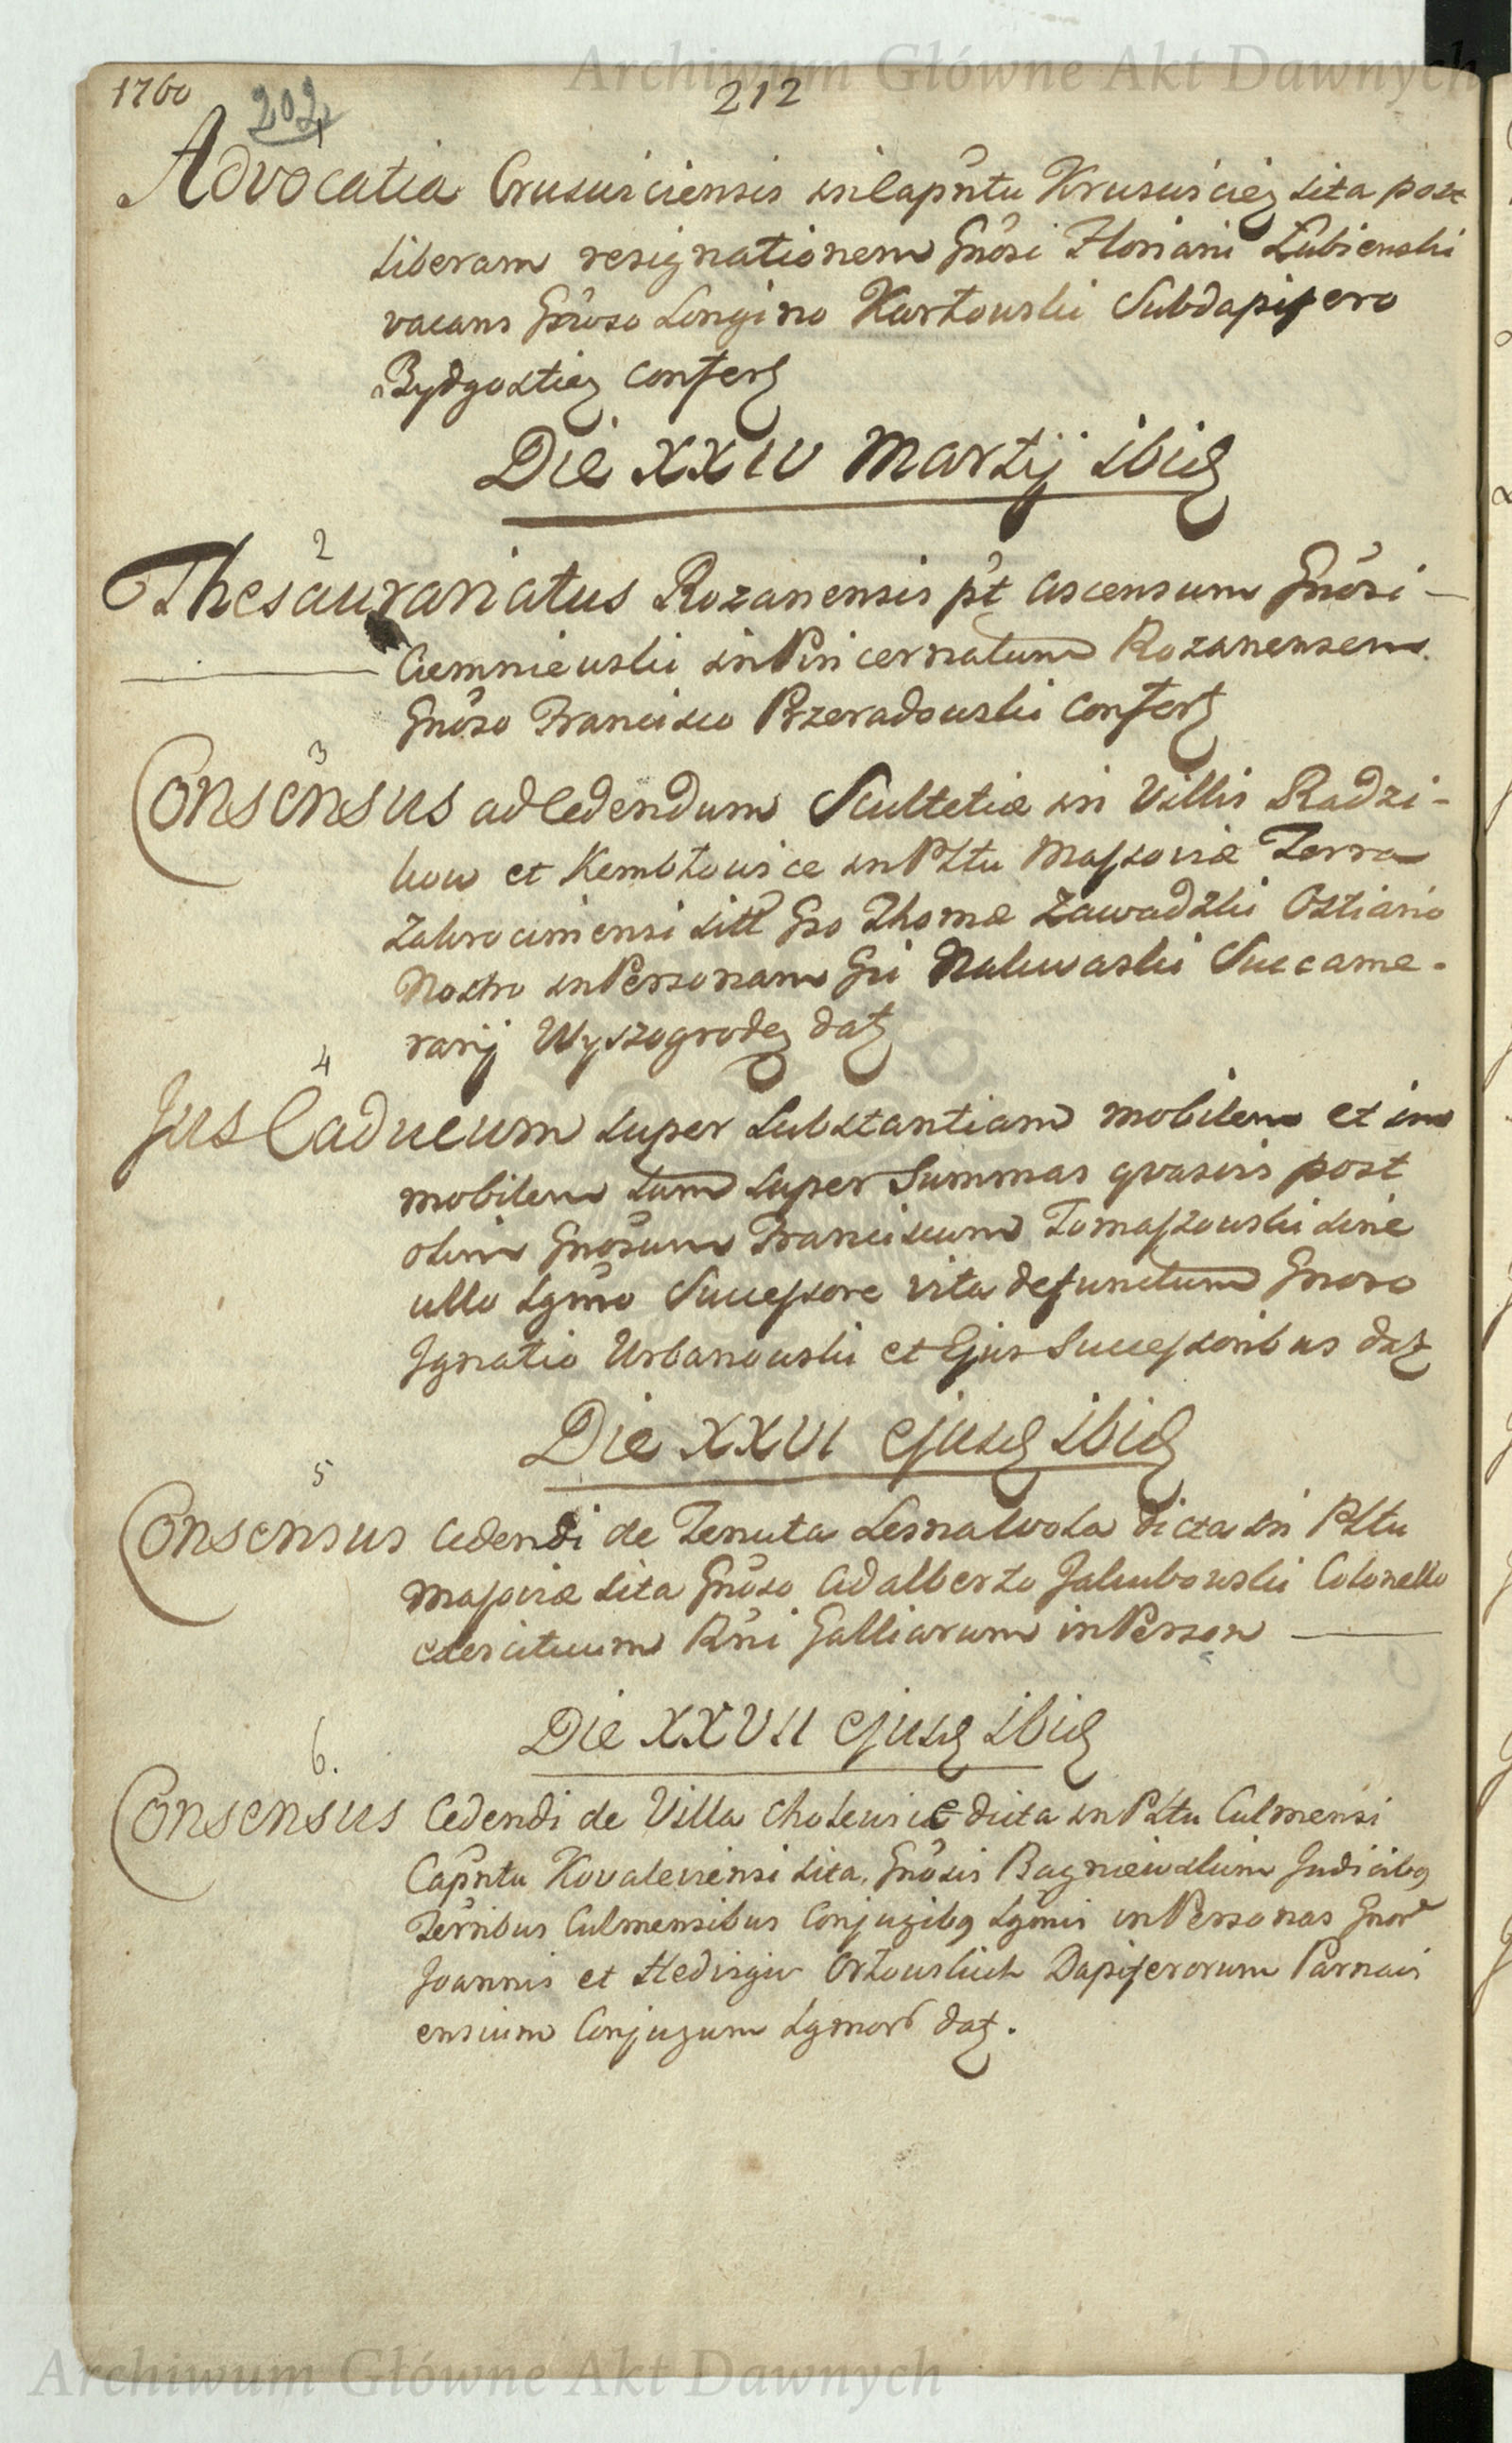 Archiwum Główne Akt Dawnych
1760
202
212
1
Advocatia Crusviciensis in Capñtu Krusviciez sita post
liberam resignationem Gnosi Floriani Łubienski
vacans Gnoso Longino Karłowski Subdapifero
Bydgostiez confert
Die XXIV Martij ibid
2
Thesaurariatus Rozanensis p̃t ascensum Gnosi –
Ciemniewski in Pincernatum Rozanensem
Gnoso Francisco Przeradowski confert
3
Consensus ad cedendum Scultetiæ in Villis Radzi-
kow et Kembłowice in Pttu Massoviæ Terra
Zakrocimensi sitt Gso Thomæ Zawadzki Ostiario
Nostro in Personam Gsi Nakwaski Succame-
rarij Wyszogrodez datz
4
Jus Caducum super Substantiam mobilem et im
mobilem tum super Summas qvasvis post
olim Gnosum Franciscum Tomaszowski sine
ullo Lgmo Successore vita defunctum Gnoso
Ignatio Urbanowski et Ejus Successoribus datz
Die XXVI ejusd ibid
5
Consensus cedendi de Tenuta Lesnawola dicta in Pttu
Masoviæ sita Gnoso Adalberto Jakubowski Colonello
exercituum Rñi Galliarum in Person
Die XXVII ejusd ibid
6.
Consensus Cedendi de Villa Cholewice dicta in Pttu Culmensi
Capñtu Kovaleviensi sita, Gnosis Bagniewskim Judicibq
Terribus Culmensibus Conjugibq Lgmis in Personas Gnor
Joannis et Hedvigis Orłowskich Dapiferorum Parnavi
ensium Conjugum Lgmor datz.
Archiwum Główne Akt Dawnych